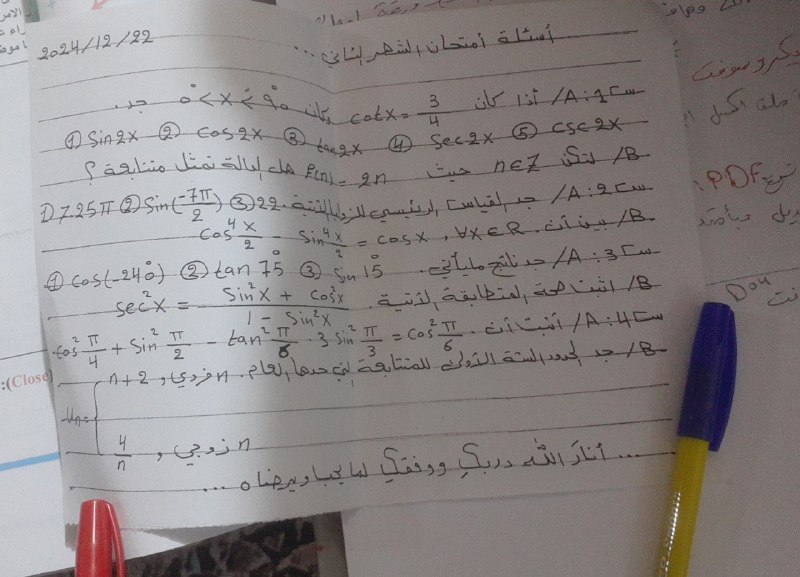 أسئلة أمتحان الشهر الثاني ... 2024/12/22
س1: A/ أذا كان cotx = 3/4 وكان 0° < x < 90° جد.
① Sin2x ② Cos2x ③ tan2x ④ Sec2x ⑤ CSC2x
B/ لتكن n∈Z حيث f(n) = 2n هل الدالة تمثل متتابعة ؟
س2: A/ جد القياس الرئيسي للزوايا الآتية. 1) 7.25π ② Sin(-7π/2) ③ 22
B/ بين أن cos⁴ x/2 - sin⁴ x/2 = cosx, ∀x∈R.
س3: A/ جد ناتج ما يأتي. ① Cos(-240°) ② tan 75° ③ Sin 15°
B/ اثبت صحة المتطابقة الآتية. sec²x = (Sin²x + Cos²x)/(1 - Sin²x)
س4: A/ أثبت أن. cos² π/4 + Sin² π/2 - tan² π/6 · 3 Sin² π/3 = Cos² π/6
B/ جد الحدود الستة الأولى للمتتابعة التي حدها العام.
Un = { n+2 , n فردي
4/n , n زوجي
... أنارَ اللّه دربكِ ووفقكِ لما يحبا ويرضاه ...
PDF
(Close):